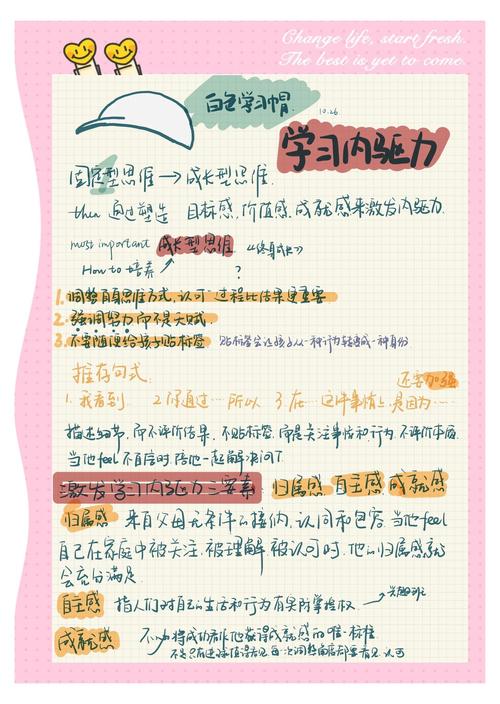 Change life, start fresh.
The best is yet to come.
白色学习帽
10.26
学习内驱力
固定型思维→成长型思维.
then 通过塑造 目标感,价值感,成就感来激发内驱力.
most important 成长型思维 《终身成长》
How to 培养 ?
1.调整自身思维方式,认可过程比结果更重要
2.强调努力而不是天赋.
3.不要随便给孩子贴标签 贴标签会让孩子从一种行为转变成一种身份
推荐句式: 还要加强
1.我看到… 2.你通过…所以 3.在…这件事情上,是因为…
描述细节,而不评价结果,不贴标签,而是关注事情和行为,不评价本质.
当他feel不自信时,陪他一起解决问T.
激发学习内驱力三要素 归属感 自主感 成就感
归属感 来自父母无条件的接纳,认同和包容.当他feel
自己在家庭中被关注.被理解.被认可时.他的归属感就
会充分满足.
自主感 指人们对自己生活和行为有一掌控权. →兴趣班
成就感 不要将成功看作他获得成就感的唯一标准